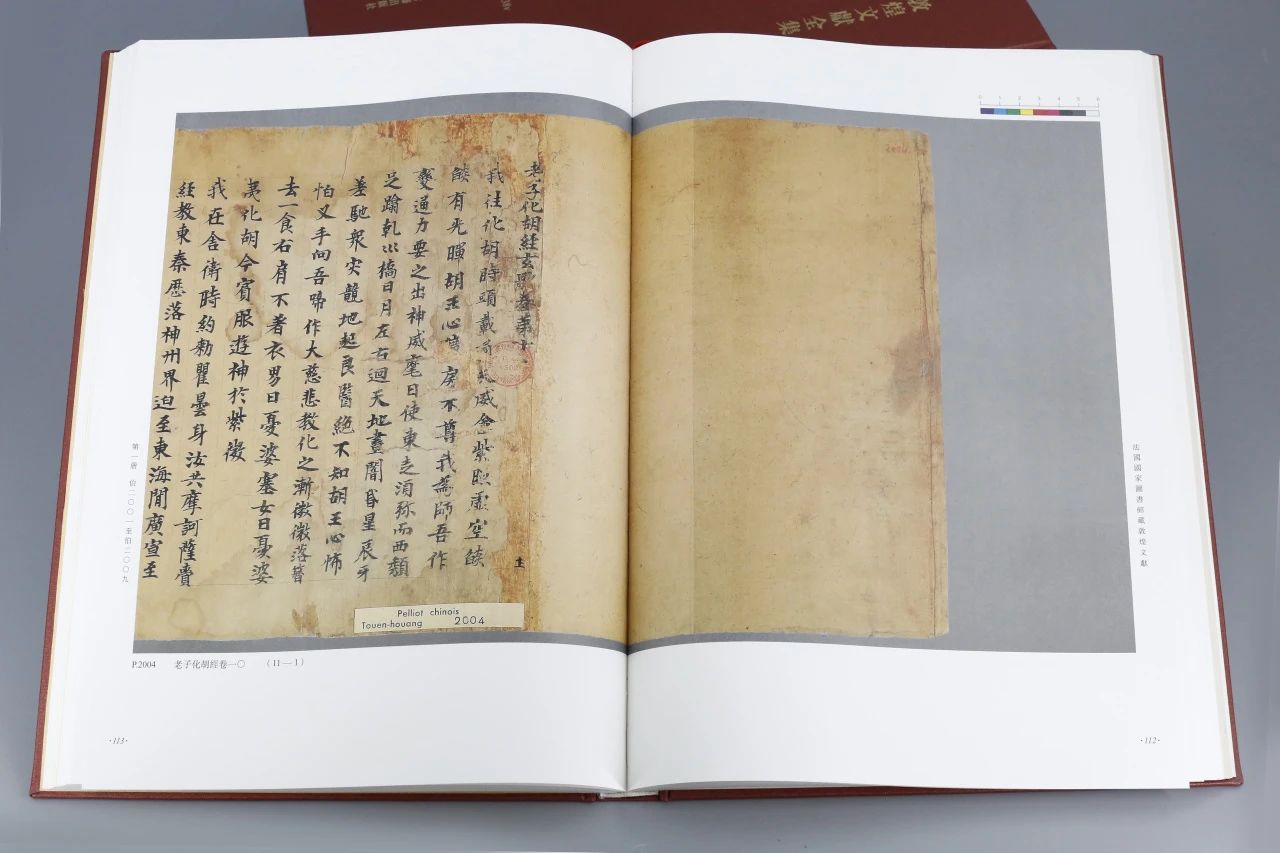 敦煌文獻全集
出版社
老子化胡經玄歌卷第十
我往化胡時頭載威紫虛空焰
焰有光暉胡王心房不尊我為師吾作
變通力要之出神威麾日使東走須弥而西頹
足蹹乾巛橋日月左右迴天地晝闇昏星辰牙
差馳衆灾競地起良醫絕不知胡王心怖
怕叉手向吾啼作大慈悲教化之漸微微落簪
去一食右肩不著衣男曰憂婆塞女曰憂婆
夷化胡今賓服遊神於紫微
我在舍衛時約勑瞿曇身汝共摩訶薩賷
經教東秦歷落神州界迫至東海間廣宣至
Pelliot chinois
Touen-houang 2004
P.2004 老子化胡經卷一〇 （11—1）
法國國家圖書館藏敦煌文獻
第一册 伯二〇〇一至伯二〇〇九
·112·
·113·
0 1 2 3 4 5 6